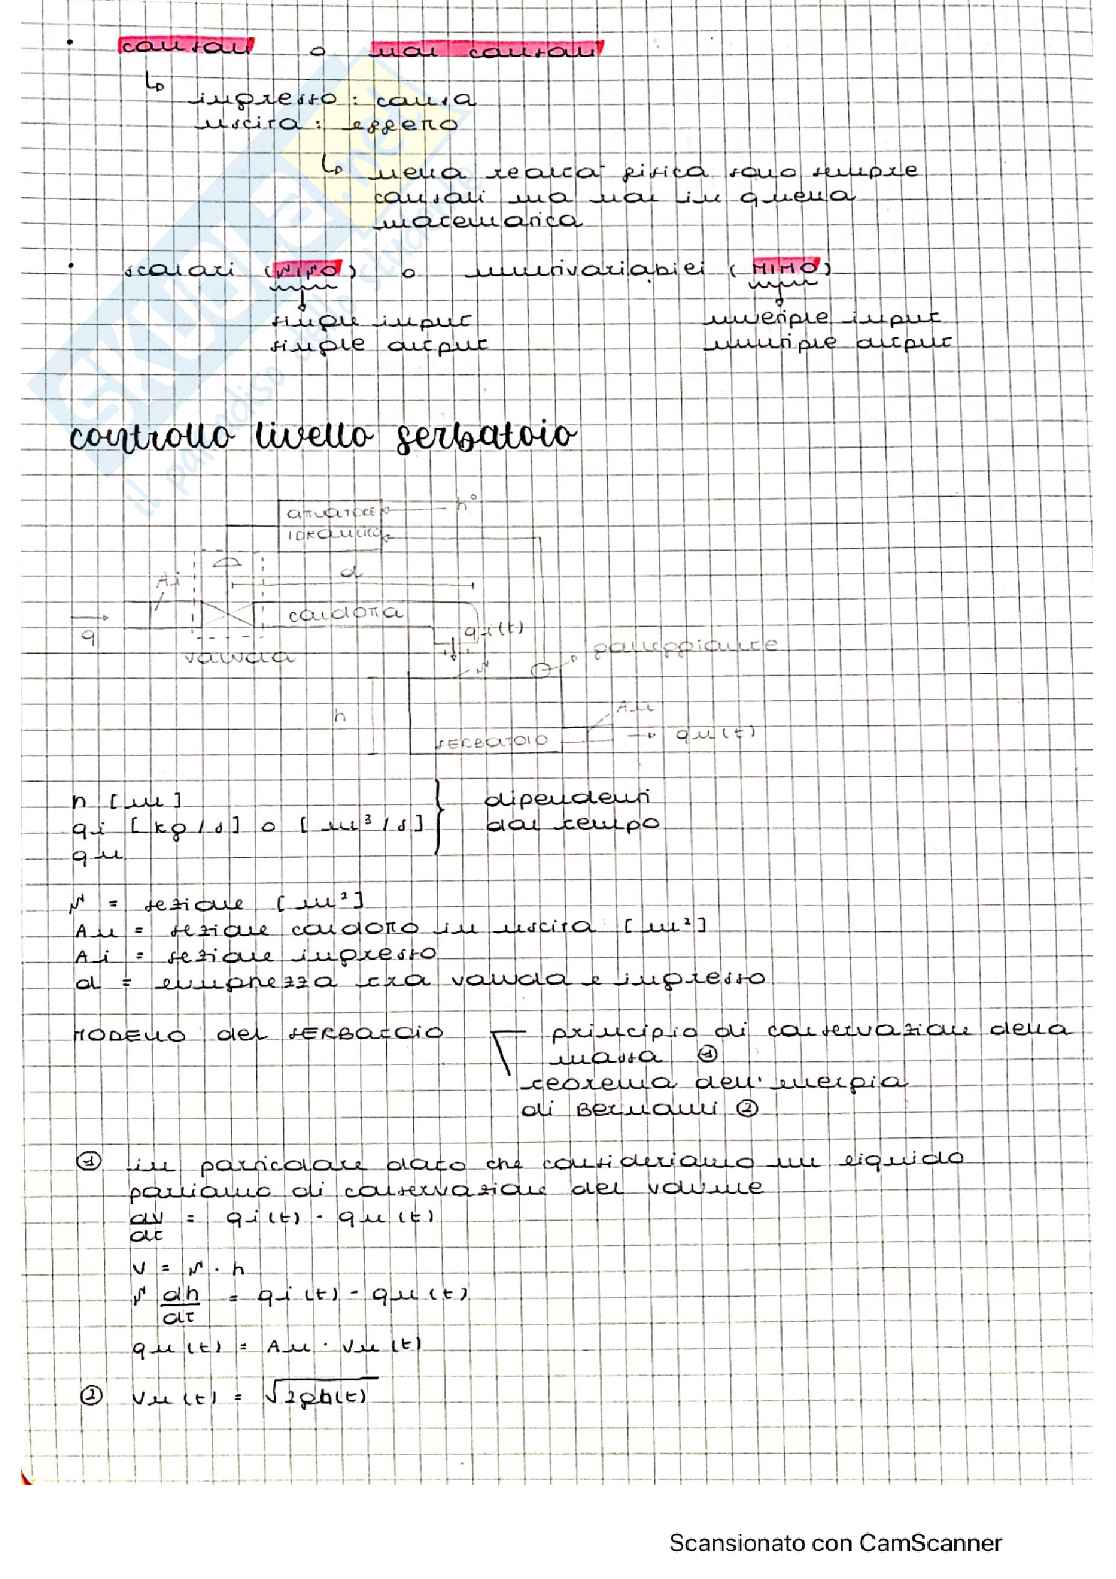 • causali o non causali
↳ ingresso : causa
uscita : effetto
↳ nella realtà fisica sono sempre
causali ma non in quella
matematica
• scalari (SISO) o multivariabili (MIMO)
simple input multiple input
simple output multiple output
controllo livello serbatoio
attuatore h°
idraulico
d
Ai
condotta
q
qi(t)
valvola
galleggiante
S
h
Au
serbatoio qu(t)
h [m] dipendenti
qi [kg/s] o [m³/s] dal tempo
qu
S = sezione [m²]
Au = sezione condotto in uscita [m²]
Ai = sezione ingresso
d = lunghezza tra valvola e ingresso
MODELLO del SERBATOIO principio di conservazione della
massa ①
teorema dell'energia
di Bernoulli ②
① in particolare dato che consideriamo un liquido
parliamo di conservazione del volume
dV/dt = qi(t) - qu(t)
V = S · h
S dh/dt = qi(t) - qu(t)
qu(t) = Au · Vu(t)
② Vu(t) = √2gh(t)
SKUOLA.net
il paradiso dello studente
Scansionato con CamScanner